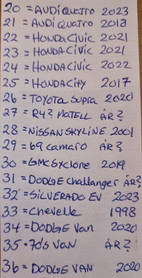 20 = AUDI QUATRO 2023
21 = AUDI QUATRO 2018
22 = HONDA CiViC 2021
23 = HONDA CiViC 2021
24 = HONDA CiViC 2022
25 = HONDA CITY 2017
26 = TOYOTA SUPRA 2020
27 = R43 MATELL ÁR?
28 = NISSAN SKYLINE 2001
29 = 69 CAMARO ÁR?
30 = GMC SYCLONE 2019
31 = DODGE CHAllANGER ÁR?
32 = SilVERADO EV 2023
33 = CHEVELLE 1998
34 = DODGE VAN 2020
35 = 70s VAN ÁR?
36 = DODGE VAN 2020